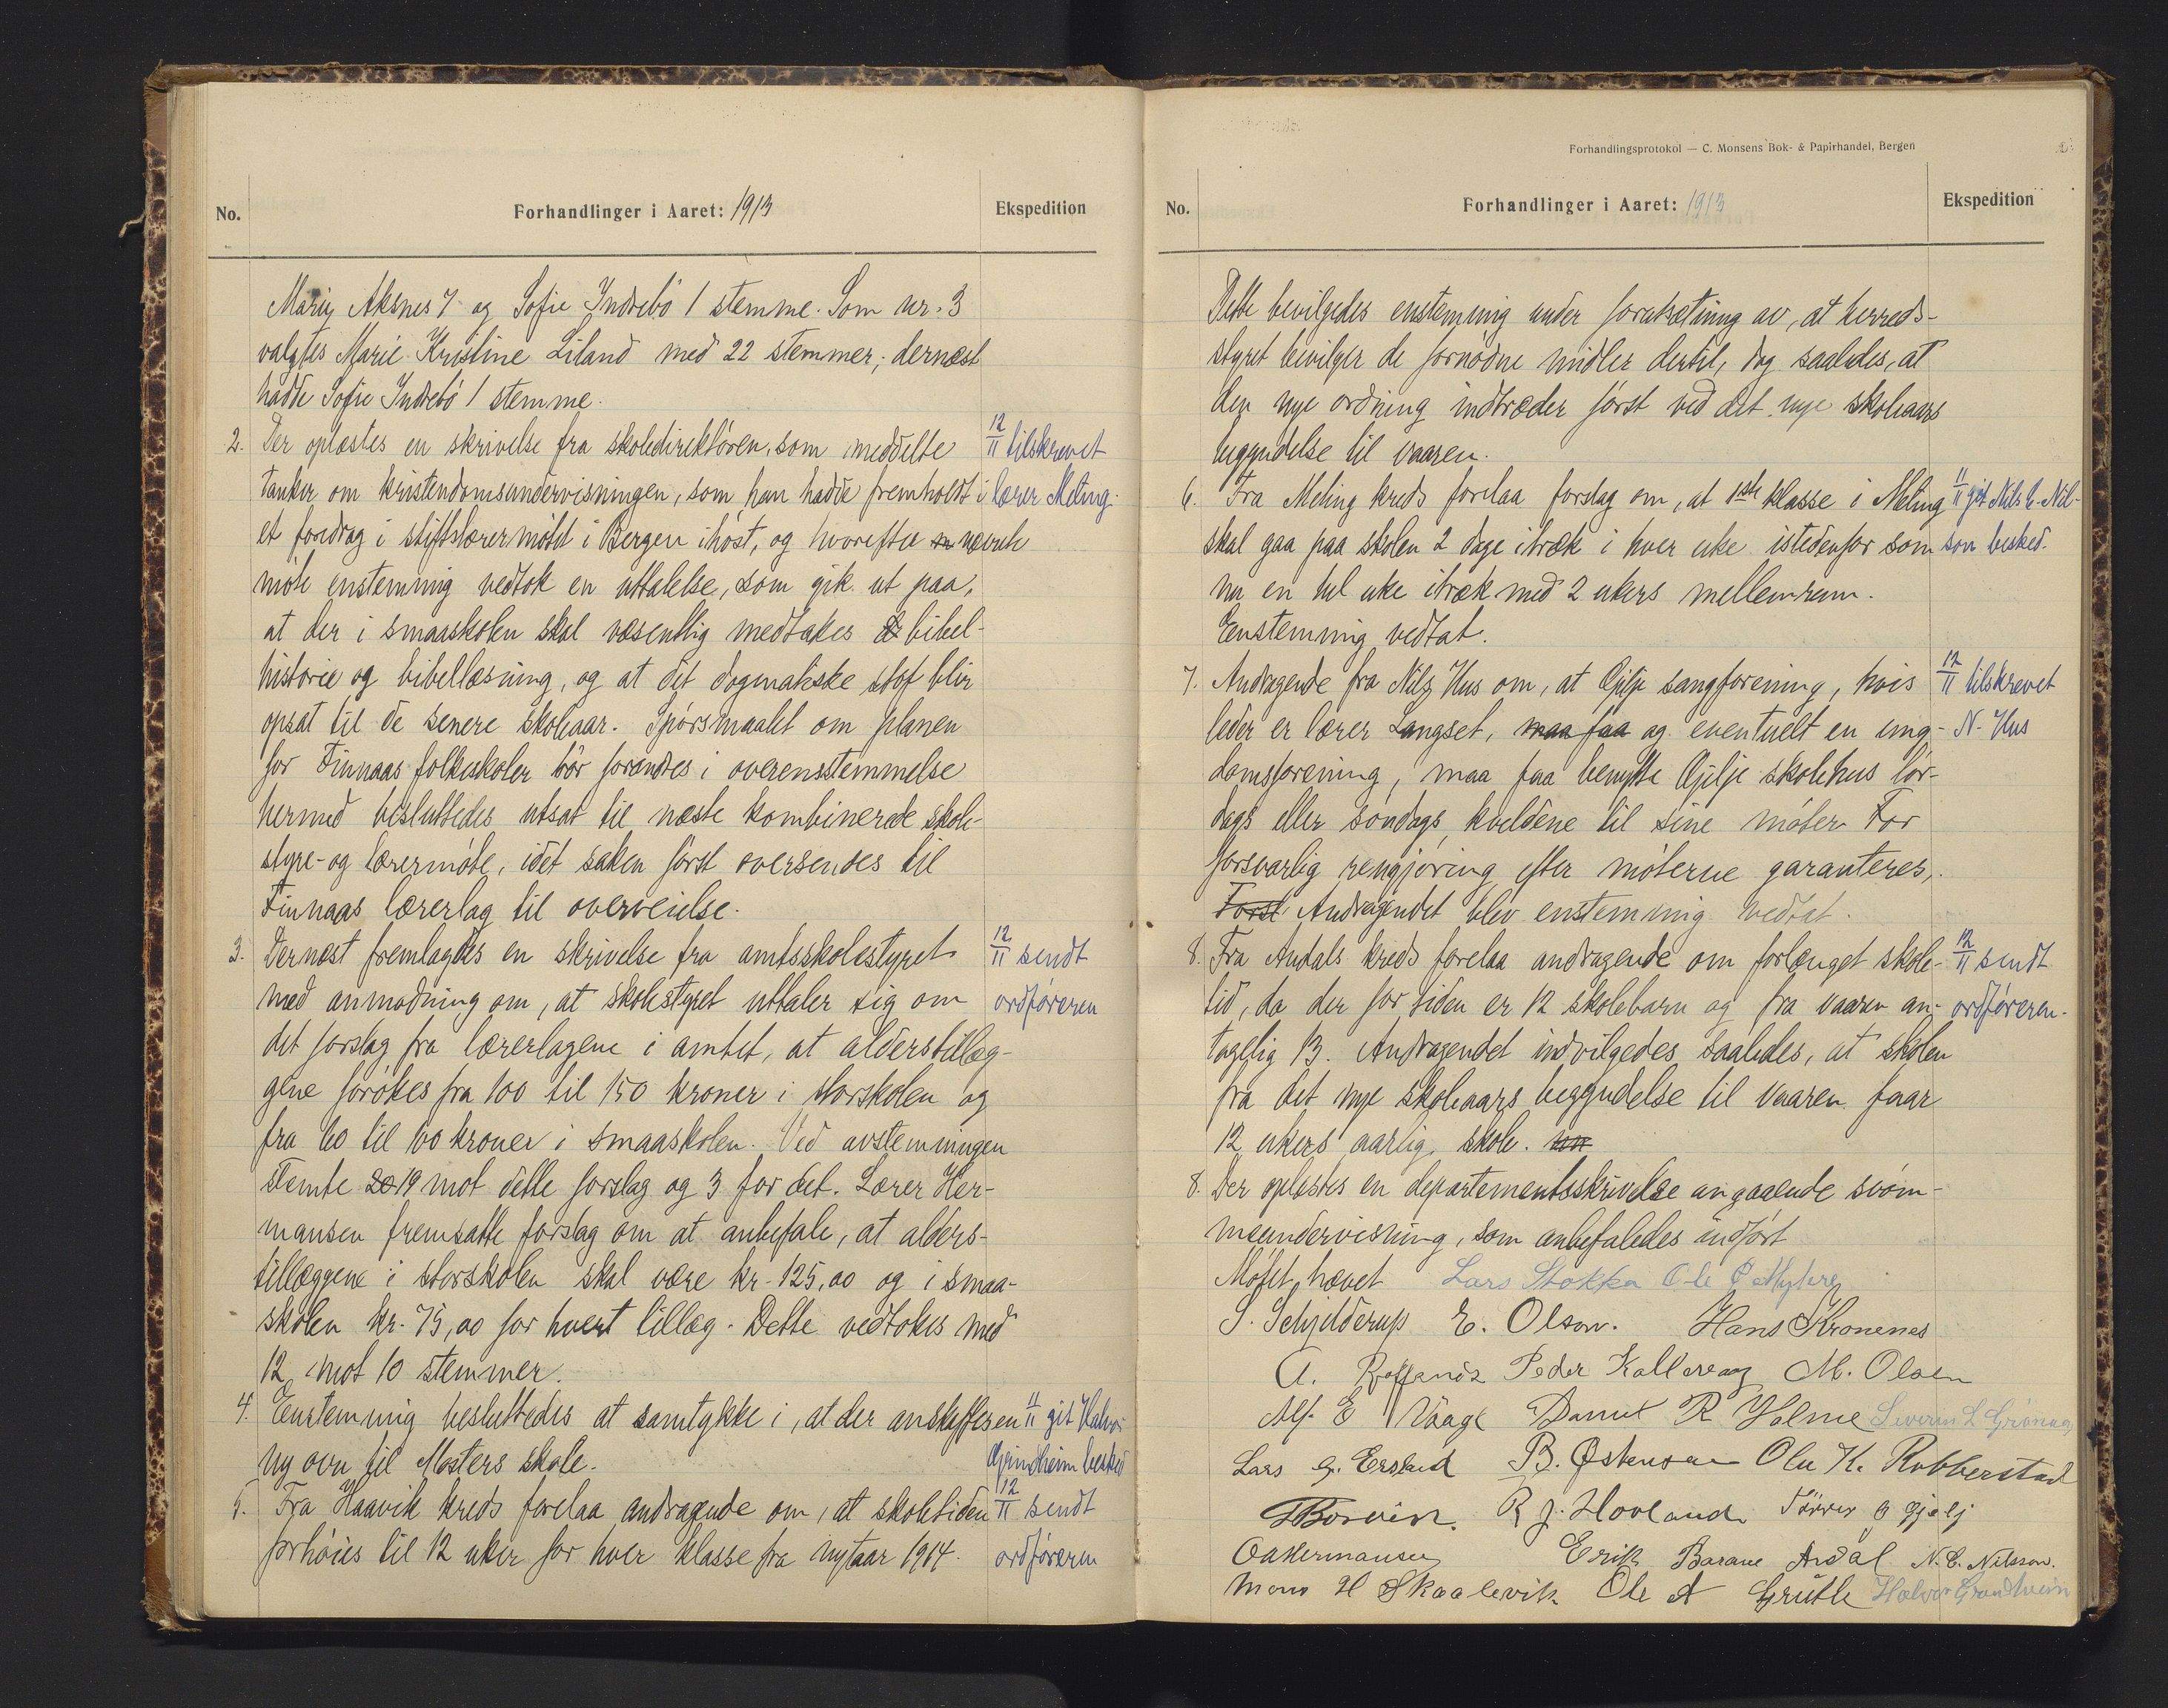 No.
Forhandlinger i Aaret: 1913
Ekspedition
Marie Aksnes 7 og Sofie Indrebö 1 stemme. Som nr. 3
valgtes Marie Kristine Liland med 22 stemmer, dernæst
hadde Sofie Indrebö 1 stemme.
2. Der oplæstes en skrivelse fra skoledirektören, som meddelte
12/11 tilskrevet
tanker om kristendomsundervisningen, som han hadde fremholdt i
lærer Meling.
et foredrag i stiftslærermötet i Bergen ihöst, og hvorefter nævnte
möte enstemmig vedtok en uttalelse, som gik ut paa,
at der i smaaskolen skal væsentlig medtakes bibel-
historie og bibellæsning, og at det dogmatiske stof blir
opsat til de senere skoleaar. Spörsmaalet om planen
for Finnaas folkeskoler bör forandres i overensstemmelse
hermed besluttedes utsat til næste kombinerede skole-
styre- og lærermöte, idet saken först oversendes til
Finnaas lærerlag til overveielse.
3. Dernæst fremlagdes en skrivelse fra amtsskolestyret
12/11 sendt
med anmodning om, at skolestyret uttaler sig om
ordföreren
det forslag fra lærerlagene i amtet, at alderstillæg-
gene forökes fra 100 til 150 kroner i storskolen og
fra 60 til 100 kroner i smaaskolen. Ved avstemningen
stemte 20 19 mot dette forslag og 3 for det. Lærer Her-
mansen fremsatte forslag om at anbefale, at alders-
tillæggene i storskolen skal være kr. 125,00 og i smaa-
skolen kr. 75,00 for hvert tillæg. Dette vedtokes med
12 mot 10 stemmer.
4. Enstemmig besluttedes at samtykke i, at der anskaffes en
11/11 git Halvor
ny ovn til Mosters skole.
Grindheim besked
5. Fra Haavik kreds forelaa andragende om, at skoletiden
12/11 sendt
forhöies til 12 uker for hver klasse fra nytaar 1914.
ordföreren
Forhandlingsprotokol — C. Monsens Bok- & Papirhandel, Bergen
No.
Forhandlinger i Aaret: 1913
Ekspedition
Dette bevilgedes enstemmig under forutsætning av, at herreds-
styret bevilger de fornödne midler dertil, dog saaledes, at
den nye ordning indtræder först ved det nye skoleaars
begyndelse til vaaren.
6. Fra Meling kreds forelaa forslag om, at 1ste klasse i Meling
11/11 git Nils C. Nil-
skal gaa paa skolen 2 dage itræk i hver uke istedenfor som
son besked.
nu en hel uke itræk med 2 ukers mellemrum.
Enstemmig vedtat.
7. Andragende fra Nils Hus om, at Gjilje sangforening, hvis
12/11 tilskrevet
leder er lærer Langset, maa faa og eventuelt en ung-
N. Hus
domsforening, maa faa benytte Gjilje skolehus lör-
dags eller söndags kveldene til sine möter. For
forsvarlig rengjöring efter möterne garanteres.
Först Andragendet blev enstemmig vedtat.
8. Fra Andals kreds forelaa andragende om forlænget skole-
12/11 sendt
tid, da der for tiden er 12 skolebarn og fra vaaren an-
ordföreren.
tagelig 13. Andragendet indvilgedes saaledes, at skolen
fra det nye skoleaars begyndelse til vaaren faar
12 ukers aarlig skole.
8. Der oplæstes en departementsskrivelse angaaende svöm-
meundervisning, som anbefaledes indfört
Mötet hævet Lars Stokka Ole P Myhre
S. Schjelderup E. Olson. Hans Kronenes
A. Røffands Peder Kallevaag M. Olsen
Alf. E Vaage Daniel R Holme Severin L Grönnaas
Lars G. Ersland B. Østensen Ole K. Robberstad
R J. Hovland Sörver O Gjelj
Oakermansen Erik Barane Ardal N. C. Nilsson.
Mons H Skaalevik Ole A Grutle Halvor Grindheim